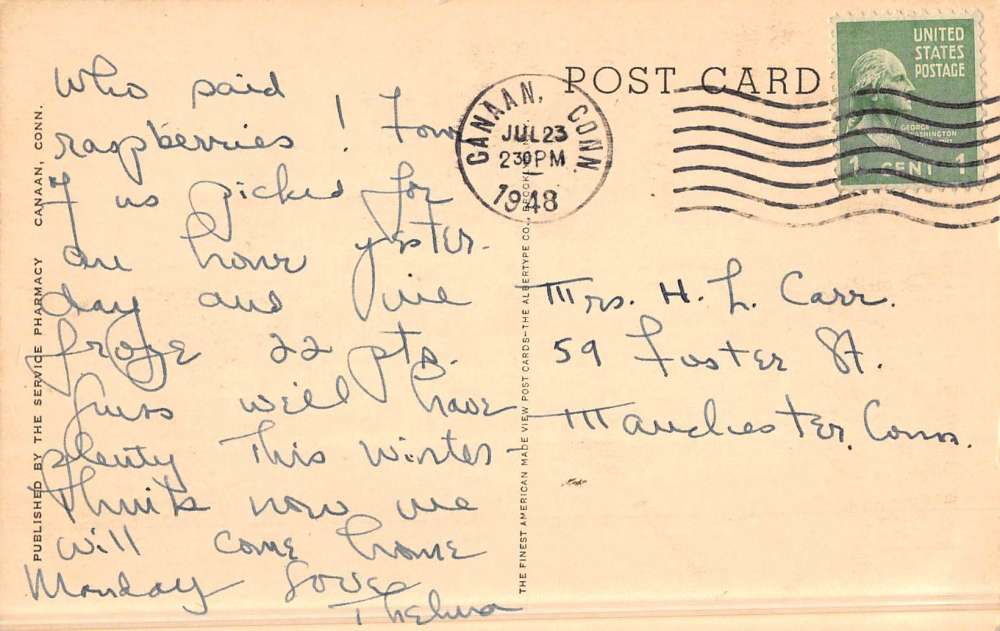 Who said
raspberries! Four
of us picked for
an hour yester-
day and we
froze 22 pts.
Guess we'll have
plenty this winter-
Think now we
will come home
Monday Love
Thelma
PUBLISHED BY THE SERVICE PHARMACY CANAAN, CONN.
THE FINEST AMERICAN MADE VIEW POST CARDS-THE ALBERTYPE CO., BROOKLYN
POST CARD
CANAAN, CONN.
JUL 23
2 30 PM
1948
UNITED
STATES
POSTAGE
GEORGE
WASHINGTON
1 CENT 1
Mrs. H. L. Carr.
59 Foster St.
Manchester, Conn.